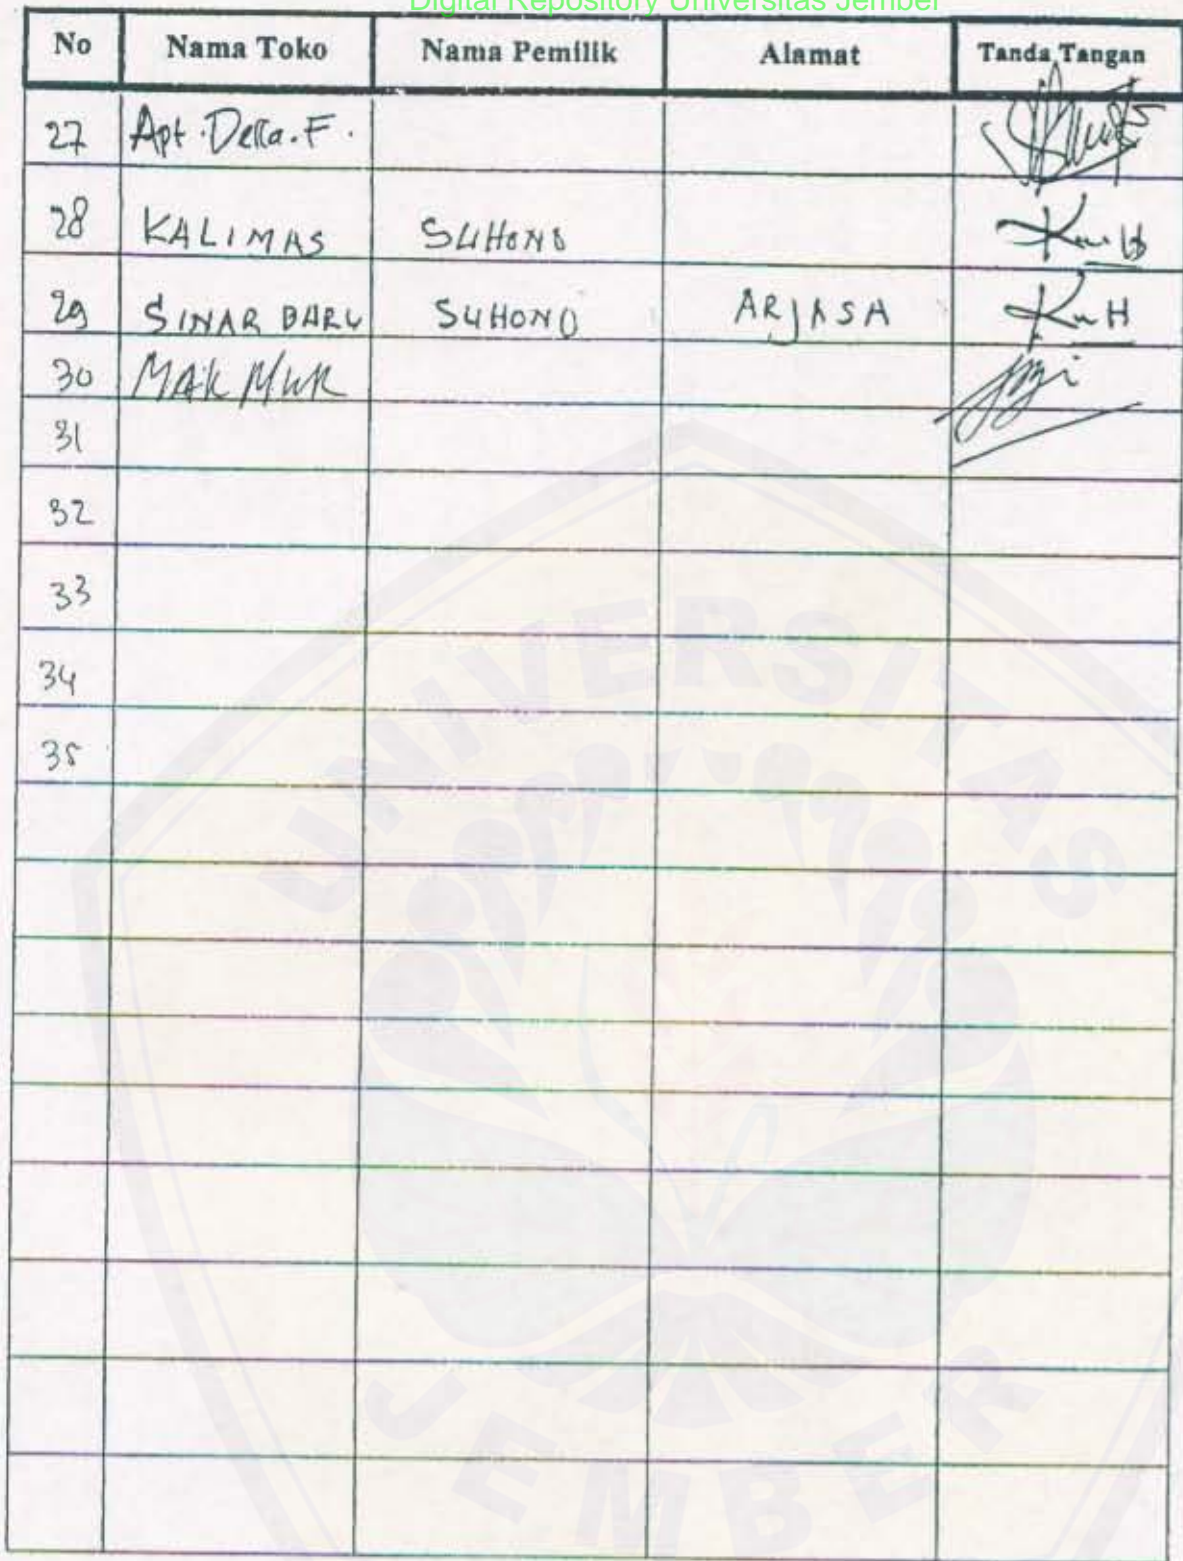 Digital Repository Universitas Jember
No Nama Toko Nama Pemilik Alamat Tanda Tangan
27 Apt. Della. F.
28 KALIMAS SUHONO
29 SINAR BARU SUHONO ARJASA
30 MAKMUR
31
32
33
34
35
UNIVERSITAS
JEMBER